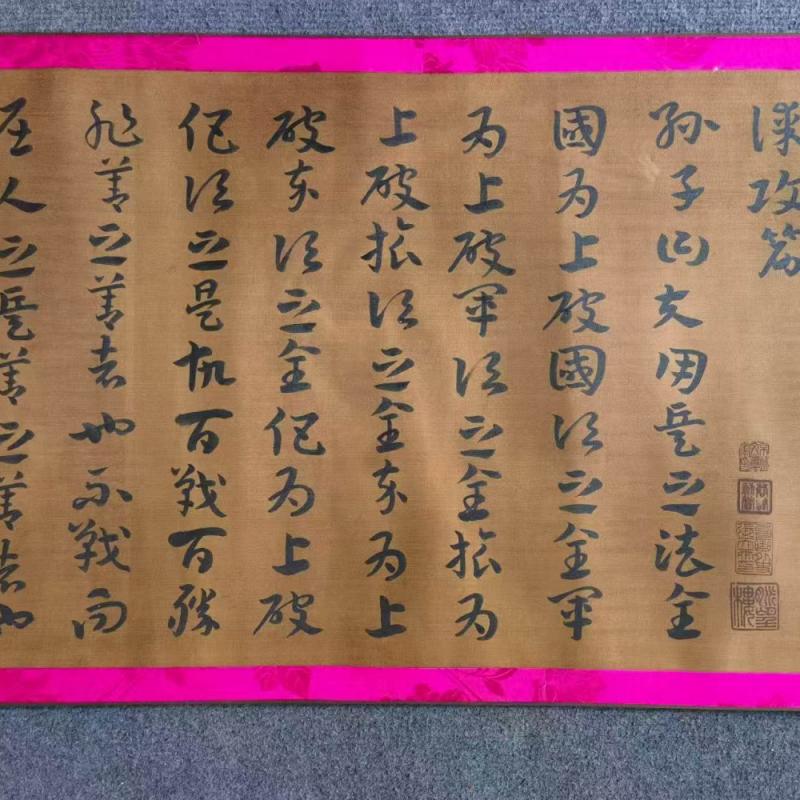 謀攻篇
孫子曰夫用兵之法全
國為上破國次之全軍
為上破軍次之全旅為
上破旅次之全卒為上
破卒次之全伍為上破
伍次之是故百戰百勝
非善之善者也不戰而
屈人之兵善之善者也